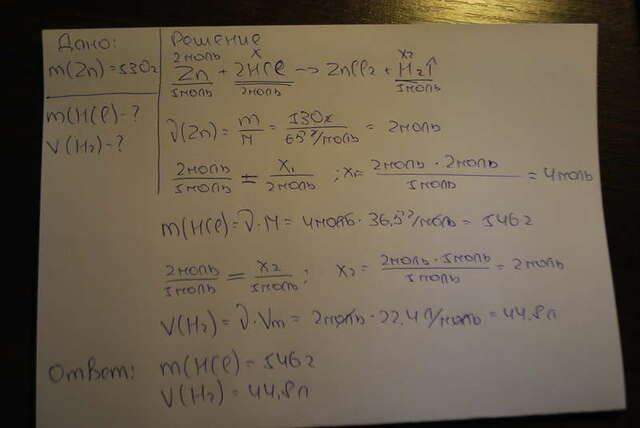 Дано:
m(Zn)=130г
m(HCl)-?
V(H₂)-?
Решение
2моль x x₂
Zn + 2HCl → ZnCl₂ + H₂↑
1моль 2моль 1моль
ν(Zn) = m/M = 130г/65г/моль = 2моль
2моль/1моль = x₁/2моль ; x₁= 2моль · 2моль/1моль = 4моль
m(HCl)=ν·M = 4моль · 36,5г/моль = 146г
2моль/1моль = x₂/1моль ; x₂ = 2моль · 1моль/1моль = 2моль
V(H₂) = ν·Vm = 2моль · 22,4л/моль = 44,8л
Ответ: m(HCl) = 146г
V(H₂) = 44,8л